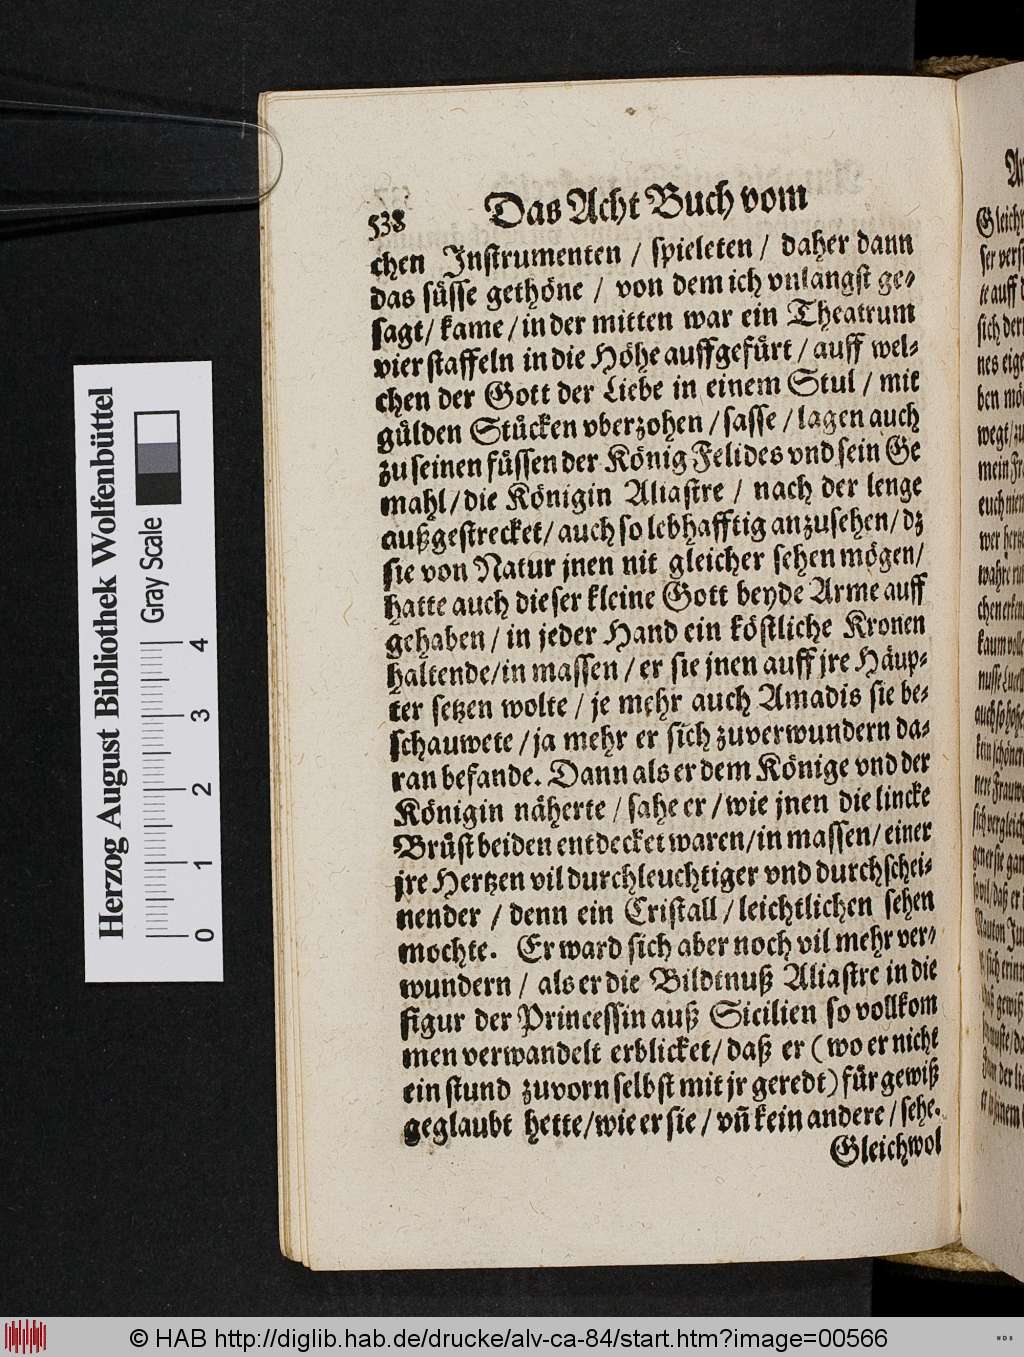 538 Das Acht Buch vom
chen Instrumenten / spieleten / daher dann
das süsse gethöne / von dem ich vnlangst ge-
sagt / kame / in der mitten war ein Theatrum
vier staffeln in die Höhe auffgefürt / auff wel-
chen der Gott der Liebe in einem Stul / mit
gülden Stücken vberzohen / sasse / lagen auch
zu seinen füssen der König Felides vnd sein Ge
mahl / die Königin Aliastre / nach der lenge
außgestrecket / auch so lebhafftig anzusehen / dz
sie von Natur jnen nit gleicher sehen mögen /
hatte auch dieser kleine Gott beyde Arme auff
gehaben / in jeder Hand ein köstliche Kronen
haltende / in massen / er sie jnen auff jre Häup-
ter setzen wolte / je mehr auch Amadis sie be-
schauwete / ja mehr er sich zuverwundern da-
ran befande. Dann als er dem Könige vnd der
Königin näherte / sahe er / wie jnen die lincke
Brüst beiden entdecket waren / in massen / einer
jre Hertzen vil durchleuchtiger vnd durchschei-
nender / denn ein Cristall / leichtlichen sehen
mochte. Er ward sich aber noch vil mehr ver-
wundern / als er die Bildtnuß Aliastre in die
figur der Princessin auß Sicilien so vollkom
men verwandelt erblicket / daß er (wo er nicht
ein stund zuvorn selbst mit jr geredt) für gewiß
geglaubt hette / wie er sie / vñ kein andere / sehe.
Gleichwol
Herzog August Bibliothek Wolfenbüttel
Gray Scale
0 1 2 3 4
© HAB http://diglib.hab.de/drucke/alv-ca-84/start.htm?image=00566